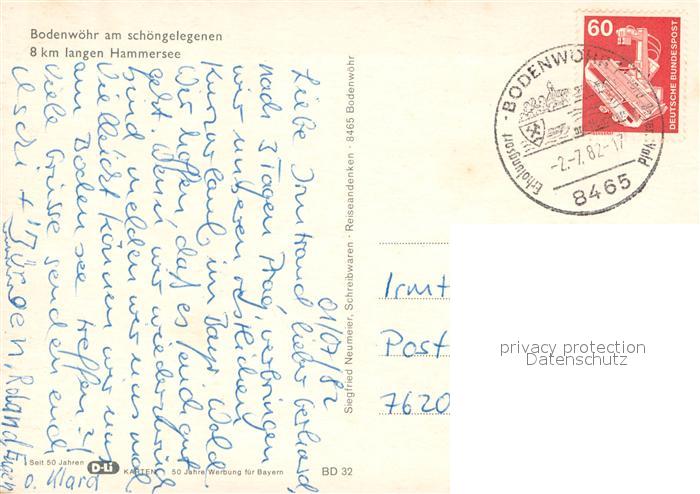 Bodenwöhr am schöngelegenen
8 km langen Hammersee
60
DEUTSCHE BUNDESPOST
BODENWÖHR
Erholungsort
-2.-7.82-17
8465
01/07/82
Liebe Irmtraud, lieber Gerhard,
nach 3 Tagen Prag, verbringen
wir unseren restlichen
Kurzurlaub im Bayr. Wald.
Wir hoffen, daß es Euch gut
geht. Wenn wir wieder zurück
sind melden wir uns mal.
Vielleicht können wir uns
am Bodensee treffen?!
Viele Grüsse senden Euch
Uschi + Jürgen, Roland,
o. Klara
Irmt
Post
7620
privacy protection
Datenschutz
Siegfried Neumeier, Schreibwaren · Reiseandenken · 8465 Bodenwöhr
Seit 50 Jahren D-Li KARTEN 50 Jahre Werbung für Bayern
BD 32